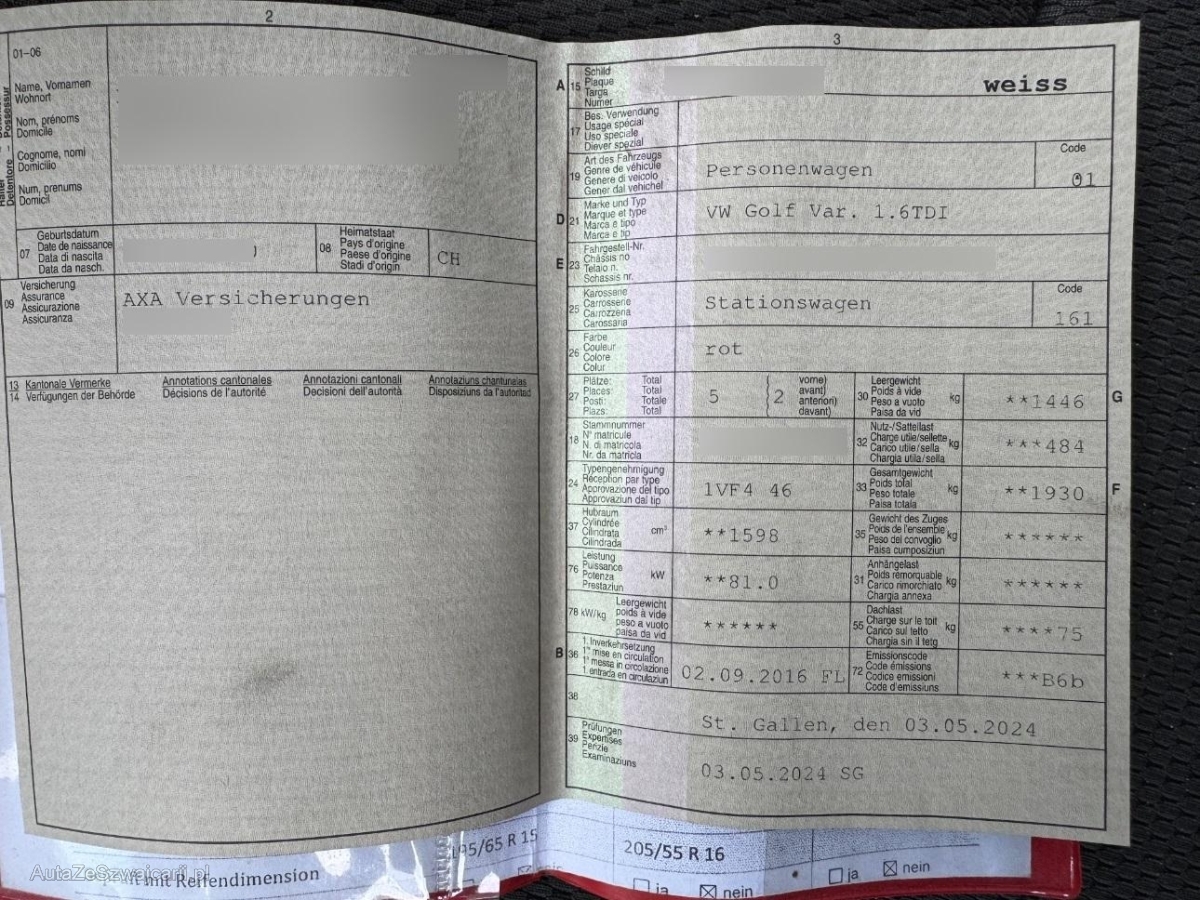 2
01-06
Name, Vornamen
Wohnort
Nom, prénoms
Domicile
Cognome, nomi
Domicilio
Num, prenums
Domicil
07
Geburtsdatum
Date de naissance
Data di nascita
Data da nasch.
08
Heimatstaat
Pays d'origine
Paese d'origine
Stadi d'origin
CH
09
Versicherung
Assurance
Assicurazione
Assicuranza
AXA Versicherungen
13 Kantonale Vermerke
14 Verfügungen der Behörde
Annotations cantonales
Décisions de l'autorité
Annotazioni cantonali
Decisioni dell'autorità
Annotaziuns chantunalas
Disposiziuns da l'autoritad
3
A 15
Schild
Plaque
Targa
Numer
weiss
17
Bes. Verwendung
Usage spécial
Uso speciale
Diever spezial
19
Art des Fahrzeugs
Genre de véhicule
Genere di veicolo
Gener dal vehichel
Personenwagen
Code
01
D 21
Marke und Typ
Marque et type
Marca e tipo
Marca e tip
VW Golf Var. 1.6TDI
E 23
Fahrgestell-Nr.
Châssis no
Telaio n.
Schassis nr.
25
Karosserie
Carrosserie
Carrozzeria
Carossaria
Stationswagen
Code
161
26
Farbe
Couleur
Colore
Colur
rot
27
Plätze: Total
Places: Total
Posti: Totale
Plazs: Total
5
2
vorne)
avant)
anteriori)
davant)
30
Leergewicht
Poids à vide
Peso a vuoto
Paisa da vid
kg
**1446
G
18
Stammnummer
N° matricule
N. di matricola
Nr. da matricla
32
Nutz-/Sattellast
Charge utile/sellette
Carico utile/sella
Chargia utila/sella
kg
***484
24
Typengenehmigung
Réception par type
Approvazione del tipo
Approvaziun dal tip
1VF4 46
33
Gesamtgewicht
Poids total
Peso totale
Paisa totala
kg
**1930
F
37
Hubraum
Cylindrée
Cilindrata
Cilindrada
cm³
**1598
35
Gewicht des Zuges
Poids de l'ensemble
Peso del convoglio
Paisa cumposiziun
kg
******
76
Leistung
Puissance
Potenza
Prestaziun
kW
**81.0
31
Anhängelast
Poids remorquable
Carico rimorchiato
Chargia annexa
kg
******
78 kW/kg
Leergewicht
poids à vide
peso a vuoto
paisa da vid
******
55
Dachlast
Charge sur le toit
Carico sul tetto
Chargia sin il tetg
kg
****75
B 36
1. Inverkehrsetzung
1re mise en circulation
1a messa in circolazione
1. entrada en circulaziun
02.09.2016 FL
72
Emissionscode
Code émissions
Codice emissioni
Code d'emissiuns
***B6b
38
St. Gallen, den 03.05.2024
39
Prüfungen
Expertises
Perizie
Examinaziuns
03.05.2024 SG
195/65 R 15
205/55 R 16
AutaZeSzwajcarii.pl
mit Reifendimension
ja
nein
ja
nein